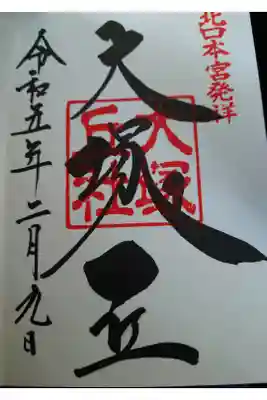 北口本宮発祥
大塚丘
大塚丘社
令和五年二月九日